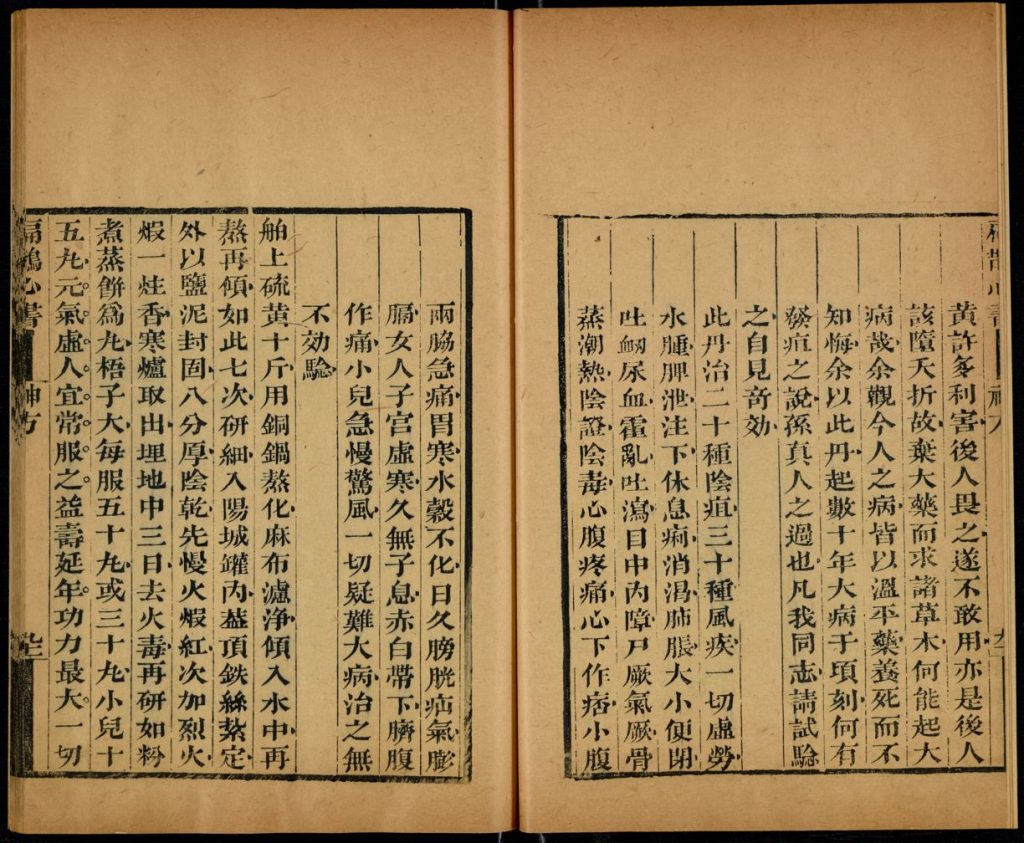 黃許多利害後人畏之遂不敢用亦是後人
該墮夭折故棄大藥而求諸草木何能起大
病哉余觀今人之病皆以溫平藥養死而不
知悔余以此丹起數十年大病于頃刻何有
發疽之說孫真人之過也凡我同志請試驗
之自見竒効
此丹治二十種陰疽三十種風疾一切虛勞
水腫脾泄注下休息痢消渴肺脹大小便閉
吐衂尿血霍亂吐瀉目中內障尸厥氣厥骨
蒸潮熱陰證陰毒心腹疼痛心下作痞小腹
兩脇急痛胃寒水穀不化日久膀胱疝氣膨
膈女人子宮虛寒久無子息赤白帶下臍腹
作痛小兒急慢驚風一切疑難大病治之無
不効驗
舶上硫黃十斤用銅鍋熬化麻布濾淨傾入水中再
熬再傾如此七次研細入陽城罐內葢頂鉄絲紮定
外以鹽泥封固八分厚陰乾先慢火煆紅次加烈火
煆一炷香寒爐取出埋地中三日去火毒再研如粉
煮蒸餅爲丸梧子大每服五十丸或三十丸小兒十
五丸元氣虛人宜常服之益壽延年功力最大一切
扁鵲心書 神方